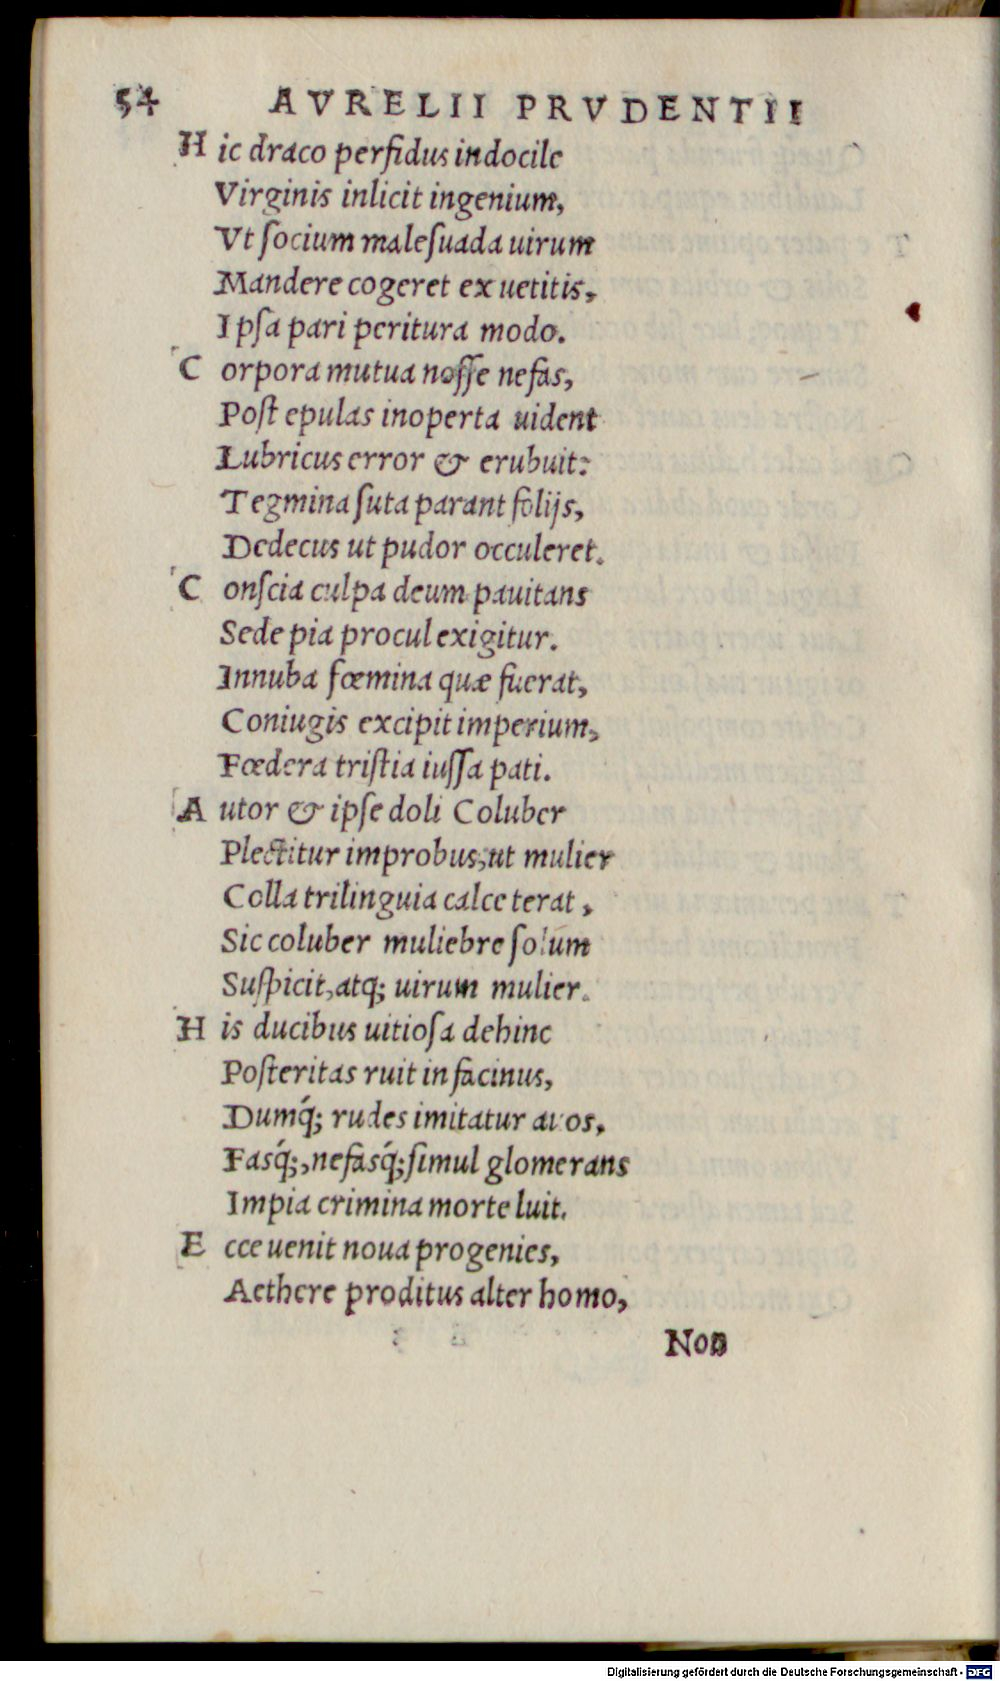 54 AVRELII PRVDENTII
H ic draco perfidus indocile
Virginis inlicit ingenium,
Vt ſocium maleſuada uirum
Mandere cogeret ex uetitis,
Ipſa pari peritura modo.
C orpora mutua noſſe nefas,
Poſt epulas inoperta uident
Lubricus error & erubuit:
Tegmina ſuta parant folijs,
Dedecus ut pudor occuleret.
C onſcia culpa deum pauitans
Sede pia procul exigitur.
Innuba fœmina quæ fuerat,
Coniugis excipit imperium,
Fœdera triſtia iuſſa pati.
A utor & ipſe doli Coluber
Plectitur improbus, ut mulier
Colla trilinguia calce terat,
Sic coluber muliebre ſolum
Suſpicit, atq; uirum mulier.
H is ducibus uitioſa dehinc
Poſteritas ruit in facinus,
Dumq́; rudes imitatur auos,
Fasq́;, nefasq́; ſimul glomerans
Impia crimina morte luit.
E cce uenit noua progenies,
Aethere proditus alter homo,
Non
Digitalisierung gefördert durch die Deutsche Forschungsgemeinschaft - DFG